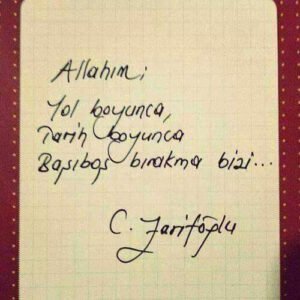 Allahım;
Yol boyunca,
Tarih boyunca
Başıboş bırakma bizi...
C. Zarifoğlu